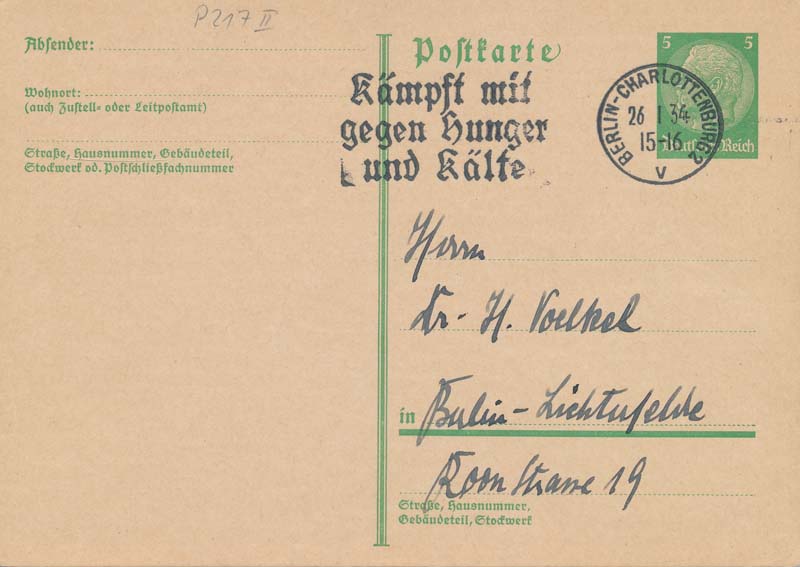 P 217 II
Absender:
Wohnort:
(auch Zustell- oder Leitpostamt)
Straße, Hausnummer, Gebäudeteil,
Stockwerk od. Postschließfachnummer
Postkarte
Kämpft mit
gegen Hunger
und Kälte
BERLIN-CHARLOTTENBURG 2
26 1 34
15-16
V
5 5
Deutsches Reich
Herrn
Dr. H. Voelkel
in Berlin-Lichterfelde
Roon Strasse 19
Straße, Hausnummer,
Gebäudeteil, Stockwerk